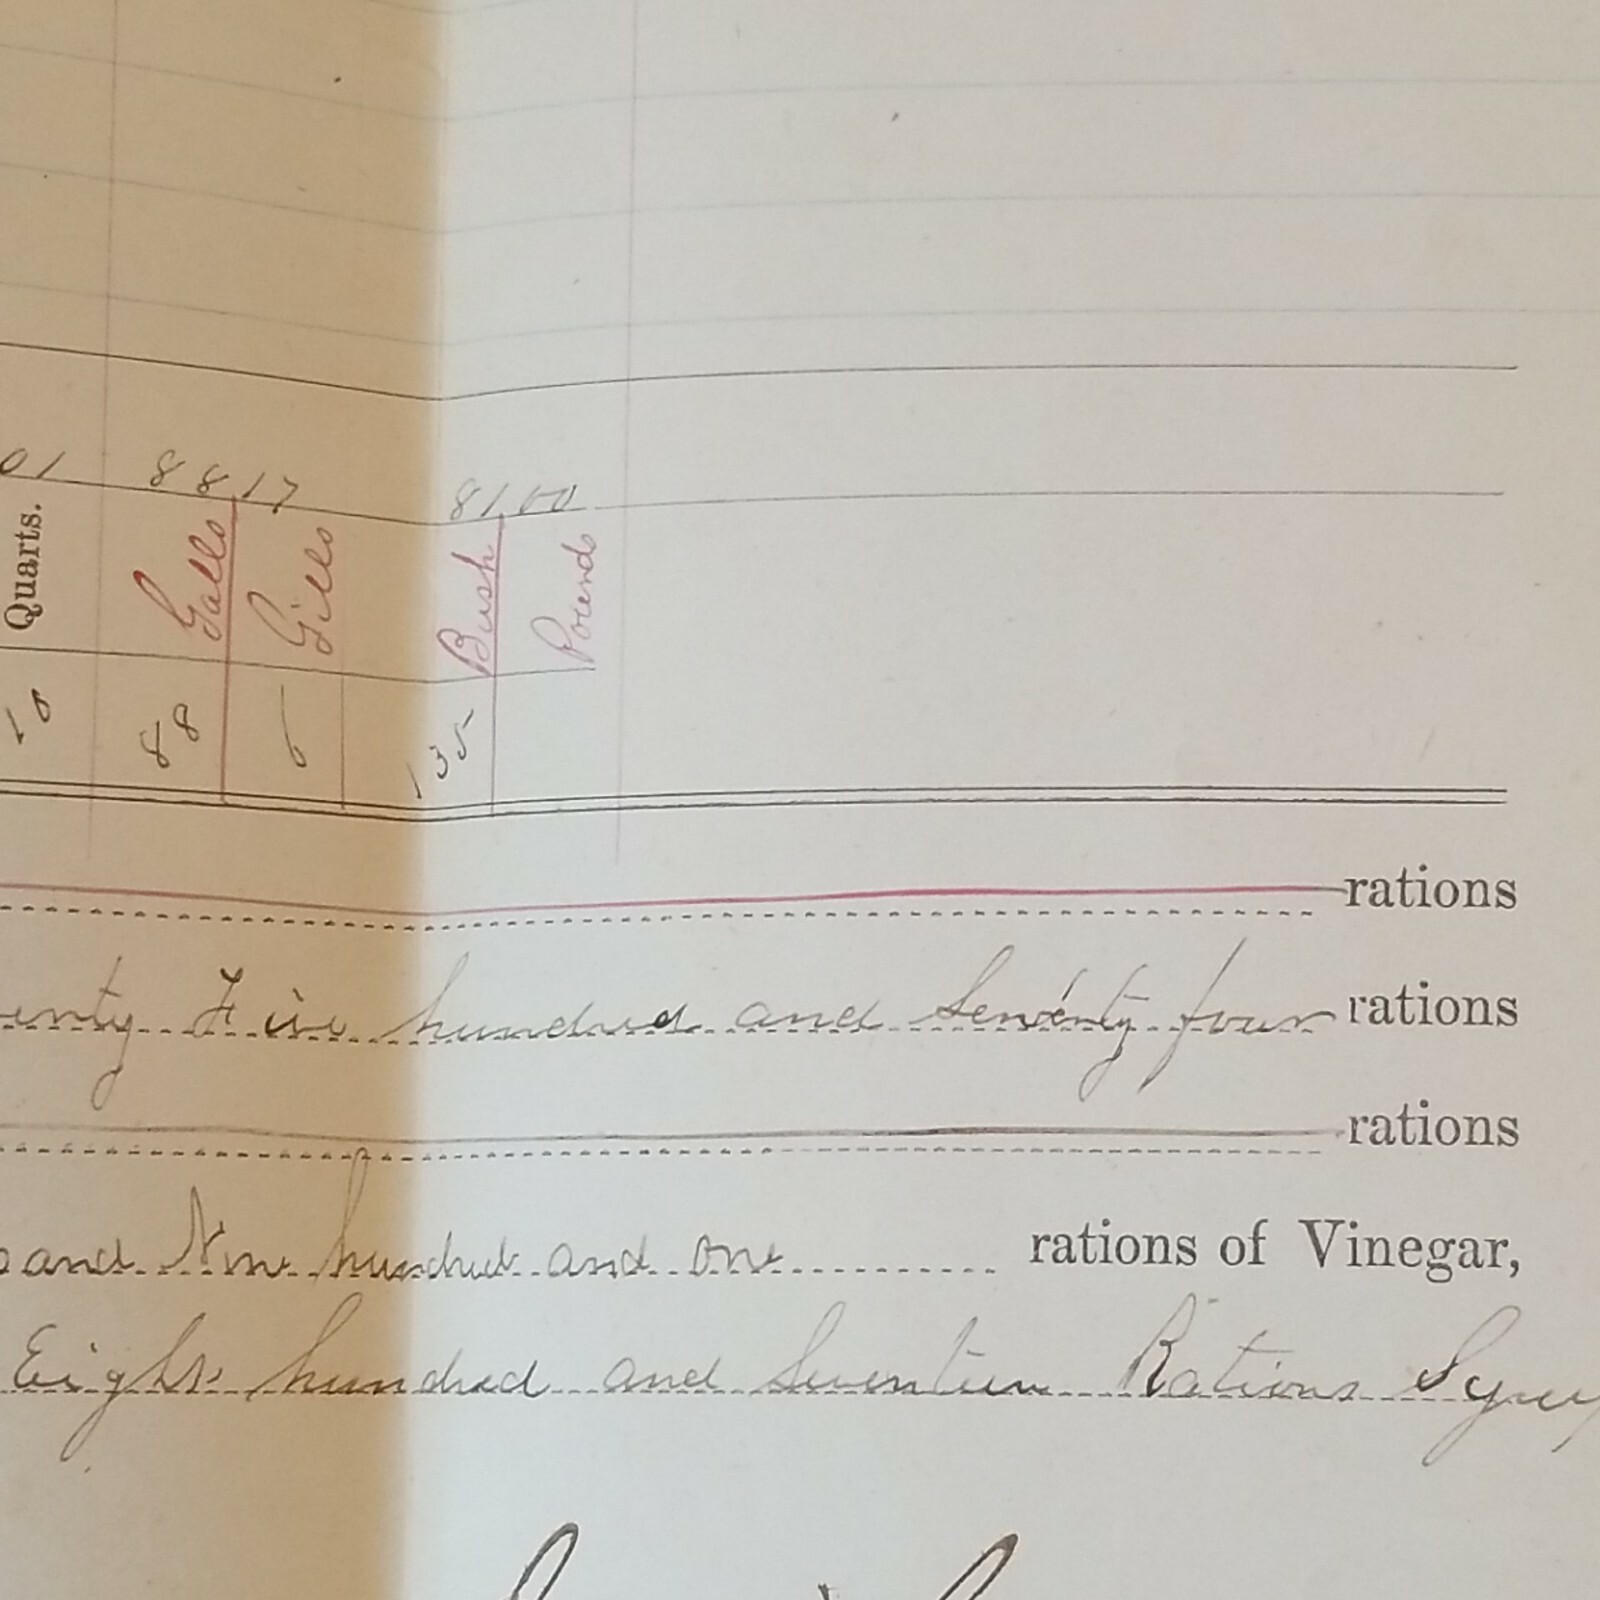 01 8817 8100
Quarts. Galls Gills Bush Pounds
10 88 6 135
rations
enty Five hundred and Seventy four rations
rations
and Nine hundred and one rations of Vinegar,
Eight hundred and Seventeen Rations Syrup